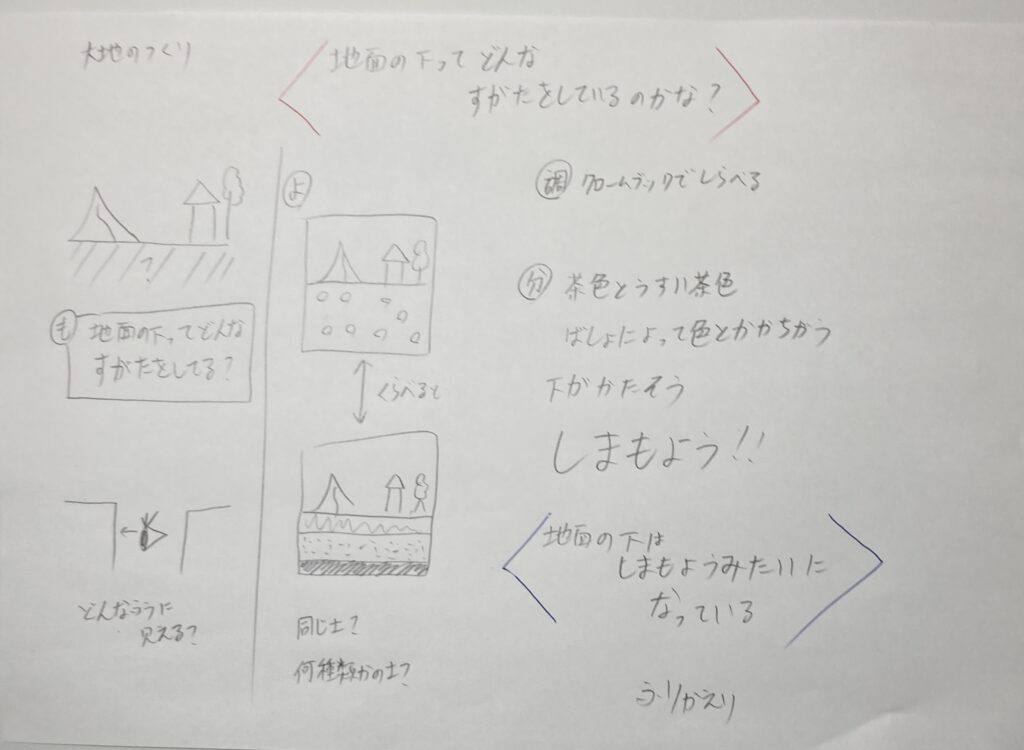 大地のつくり
地面の下ってどんな
すがたをしているのかな?
?
も 地面の下ってどんな
すがたをしてる?
どんなふうに
見える?
よ
くらべると
同じ土?
何種類かの土?
調 クロームブックでしらべる
分 茶色とうすい茶色
ばしょによって色とかがちがう
下がかたそう
しまもよう!!
地面の下は
しまもようみたいに
なっている
ふりかえり